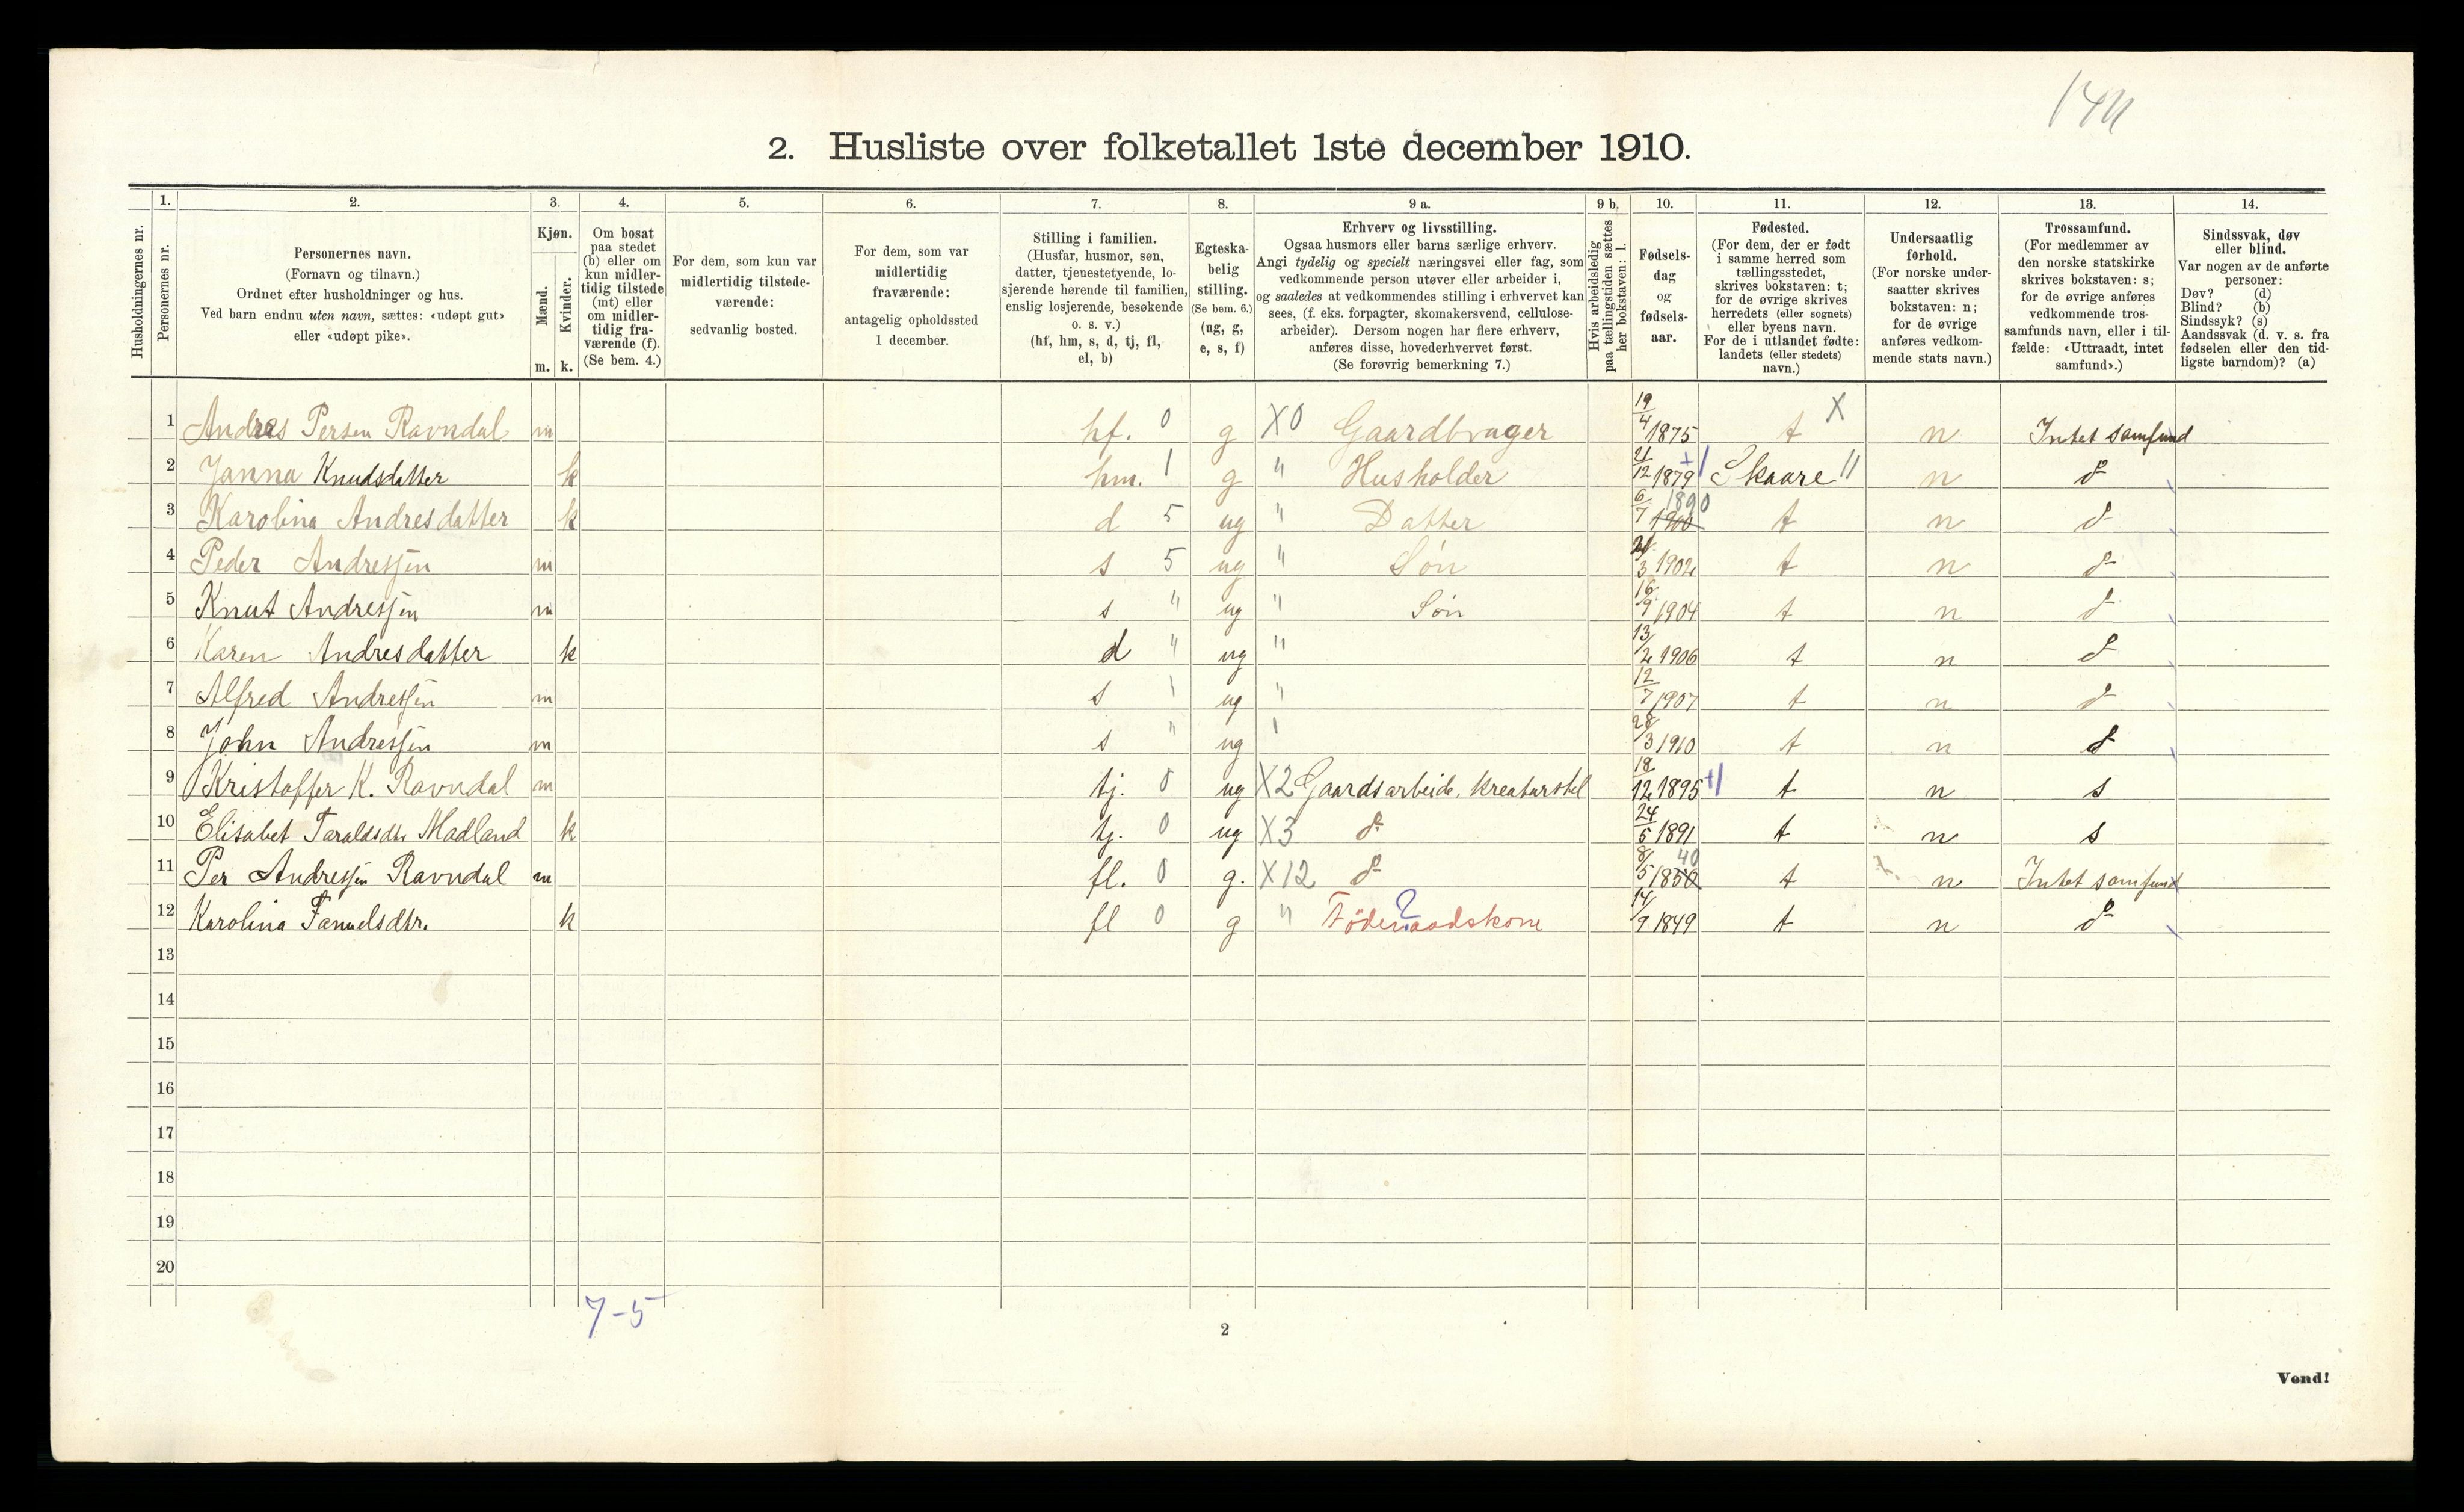 2. Husliste over folketallet 1ste december 1910.
Husholdningernes nr.
1. Personernes nr.
2. Personernes navn.
(Fornavn og tilnavn.)
Ordnet efter husholdninger og hus.
Ved barn endnu uten navn, sættes: «udøpt gut»
eller «udøpt pike».
3. Kjøn.
Mænd. m.
Kvinder. k.
4. Om bosat
paa stedet
(b) eller om
kun midler-
tidig tilstede
(mt) eller
om midler-
tidig fra-
værende (f).
(Se bem. 4.)
5. For dem, som kun var
midlertidig tilstede-
værende:
sedvanlig bosted.
6. For dem, som var
midlertidig
fraværende:
antagelig opholdssted
1 december.
7. Stilling i familien.
(Husfar, husmor, søn,
datter, tjenestetyende, lo-
sjerende hørende til familien,
enslig losjerende, besøkende
o. s. v.)
(hf, hm, s, d, tj, fl,
el, b)
8. Egteska-
belig
stilling.
(Se bem. 6.)
(ug, g,
e, s, f)
9 a. Erhverv og livsstilling.
Ogsaa husmors eller barns særlige erhverv.
Angi tydelig og specielt næringsvei eller fag, som
vedkommende person utøver eller arbeider i,
og saaledes at vedkommendes stilling i erhvervet kan
sees, (f. eks. forpagter, skomakersvend, cellulose-
arbeider). Dersom nogen har flere erhverv,
anføres disse, hovederhvervet først.
(Se forøvrig bemerkning 7.)
9 b. Hvis arbeidsledig
paa tællingstiden sættes
her bokstaven: l.
10. Fødsels-
dag
og
fødsels-
aar.
11. Fødested.
(For dem, der er født
i samme herred som
tællingsstedet,
skrives bokstaven: t;
for de øvrige skrives
herredets (eller sognets)
eller byens navn.
For de i utlandet fødte:
landets (eller stedets)
navn.)
12. Undersaatlig
forhold.
(For norske under-
saatter skrives
bokstaven: n;
for de øvrige
anføres vedkom-
mende stats navn.)
13. Trossamfund.
(For medlemmer av
den norske statskirke
skrives bokstaven: s;
for de øvrige anføres
vedkommende tros-
samfunds navn, eller i til-
fælde: «Uttraadt, intet
samfund».)
14. Sindssvak, døv
eller blind.
Var nogen av de anførte
personer:
Døv? (d)
Blind? (b)
Sindssyk? (s)
Aandssvak (d. v. s. fra
fødselen eller den tid-
ligste barndom)? (a)
1 Andres Persen Ravndal m hf. 0 g X0 Gaardbruger 19/4 1875 t X n Intet samfund
2 Janna Knudsdatter k hm. 1 g " Husholder 21/12 1879 Skaare n do
3 Karolina Andresdatter k d 5 ug " Datter 6/7 1900 1890 t n do
4 Peder Andressen m s 5 ug " Søn 21/3 1902 t n do
5 Knut Andressen m s " ug " Søn 16/9 1904 t n do
6 Karen Andresdatter k d " ug " 13/2 1906 t n do
7 Alfred Andressen m s " ug " 12/7 1907 t n do
8 John Andressen m s " ug " 28/3 1910 t n do
9 Kristoffer K. Ravndal m tj. 0 ug X2 Gaardsarbeide, kreaturstel 18/12 1895 t n s
10 Elisabet Taraldsdtr. Madland k tj. 0 ug X3 do 24/5 1891 t n s
11 Per Andressen Ravndal m fl. 0 g. X12 do 8/5 1850 40 t n Intet samfund
12 Karolina Samuelsdtr. k fl 0 g " Føderaadskone ? 14/9 1849 t n do
13
14
15
16
17
18
19
20
7-5
2
Vend!